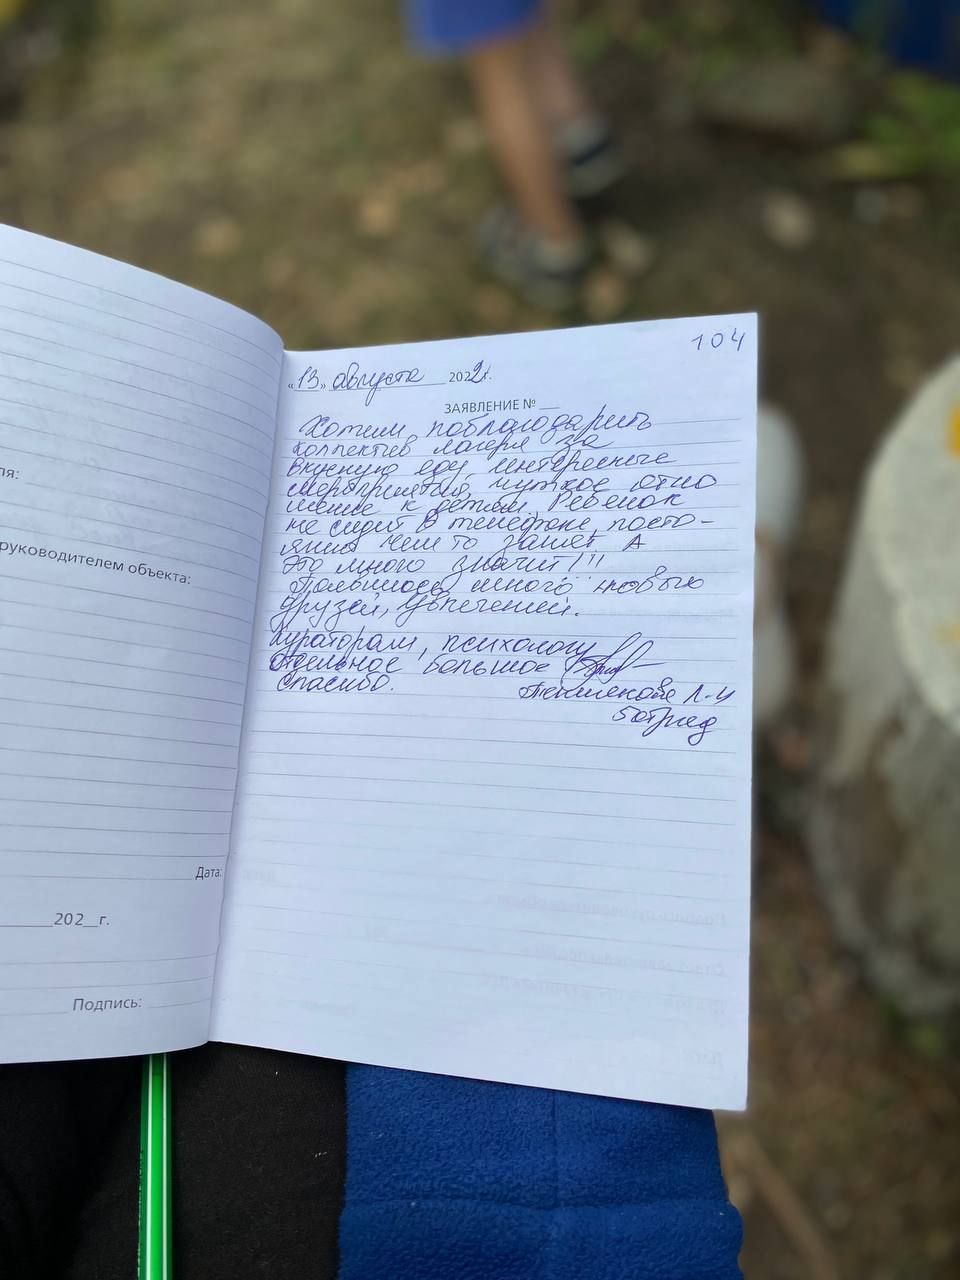 104
«13» августа 2022г.
ЗАЯВЛЕНИЕ № __
Хотим поблагодарить
коллектив лагеря за
вкусную еду, интересные
мероприятия, чуткое отно
шение к детям. Ребенок
не сидит в телефоне, посто-
янно чем то занят. А
это много значит!!!
Появилось много новых
друзей, увлечений.
Кураторам, психологу
отдельное большое
спасибо.
5 отряд
ля:
руководителем объекта:
Дата:
202__г.
Подпись: